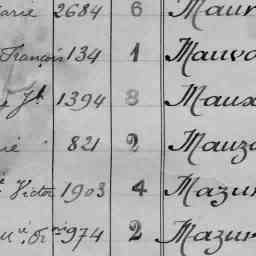 arie 2684 6 Maur
François 134 1 Mauvo
Jh 1394 8 Maux
ie 821 2 Mauzo
Victor 1903 4 Mazur
974 2 Mazur